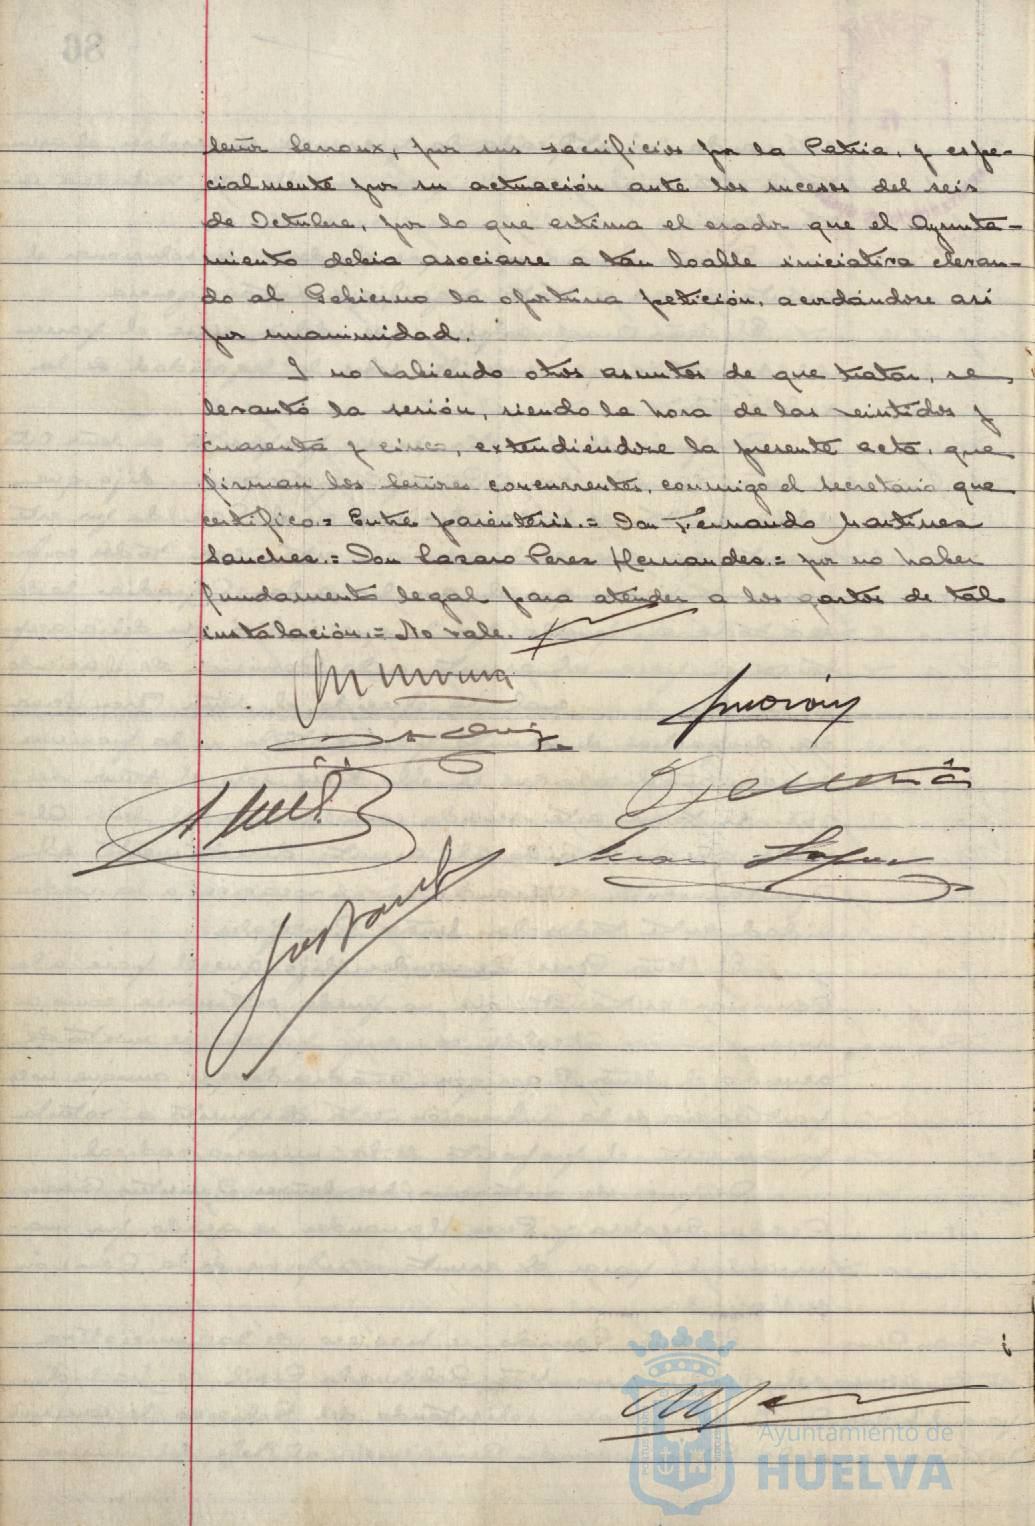 señor Lerroux, por sus sacrificios por la Patria, y espe-
cialmente por su actuación ante los sucesos del seis
de Octubre, por lo que estima el orador que el Ayunta-
miento debia asociarse a tan loable iniciativa elevan-
do al Gobierno la oportuna petición, acordándose así
por unanimidad.
Y no habiendo otros asuntos de que tratar, se
levantó la sesión, siendo la hora de las veintidos y
cuarenta y cinco, extendiéndose la presente acta, que
firman los señores concurrentes, conmigo el secretario que
certifico.= Entre paréntesis.= Don Fernando Martinez
Sanchez.= Don Cazaro Perez Hernandez.= por no haber
fundamento legal para atender a los gastos de tal
instalación.= No vale.
Ayuntamiento de
HUELVA